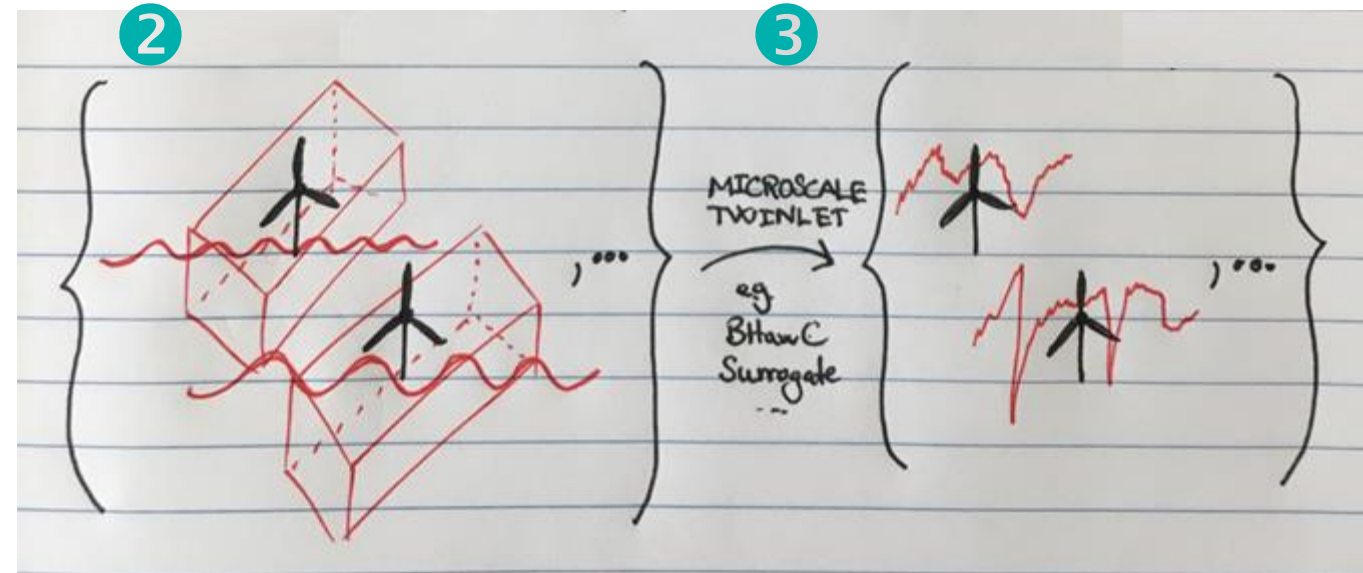 2
3
, ...
MICROSCALE
TWOINLET
eg
BHawC
Surrogate
...
, ...